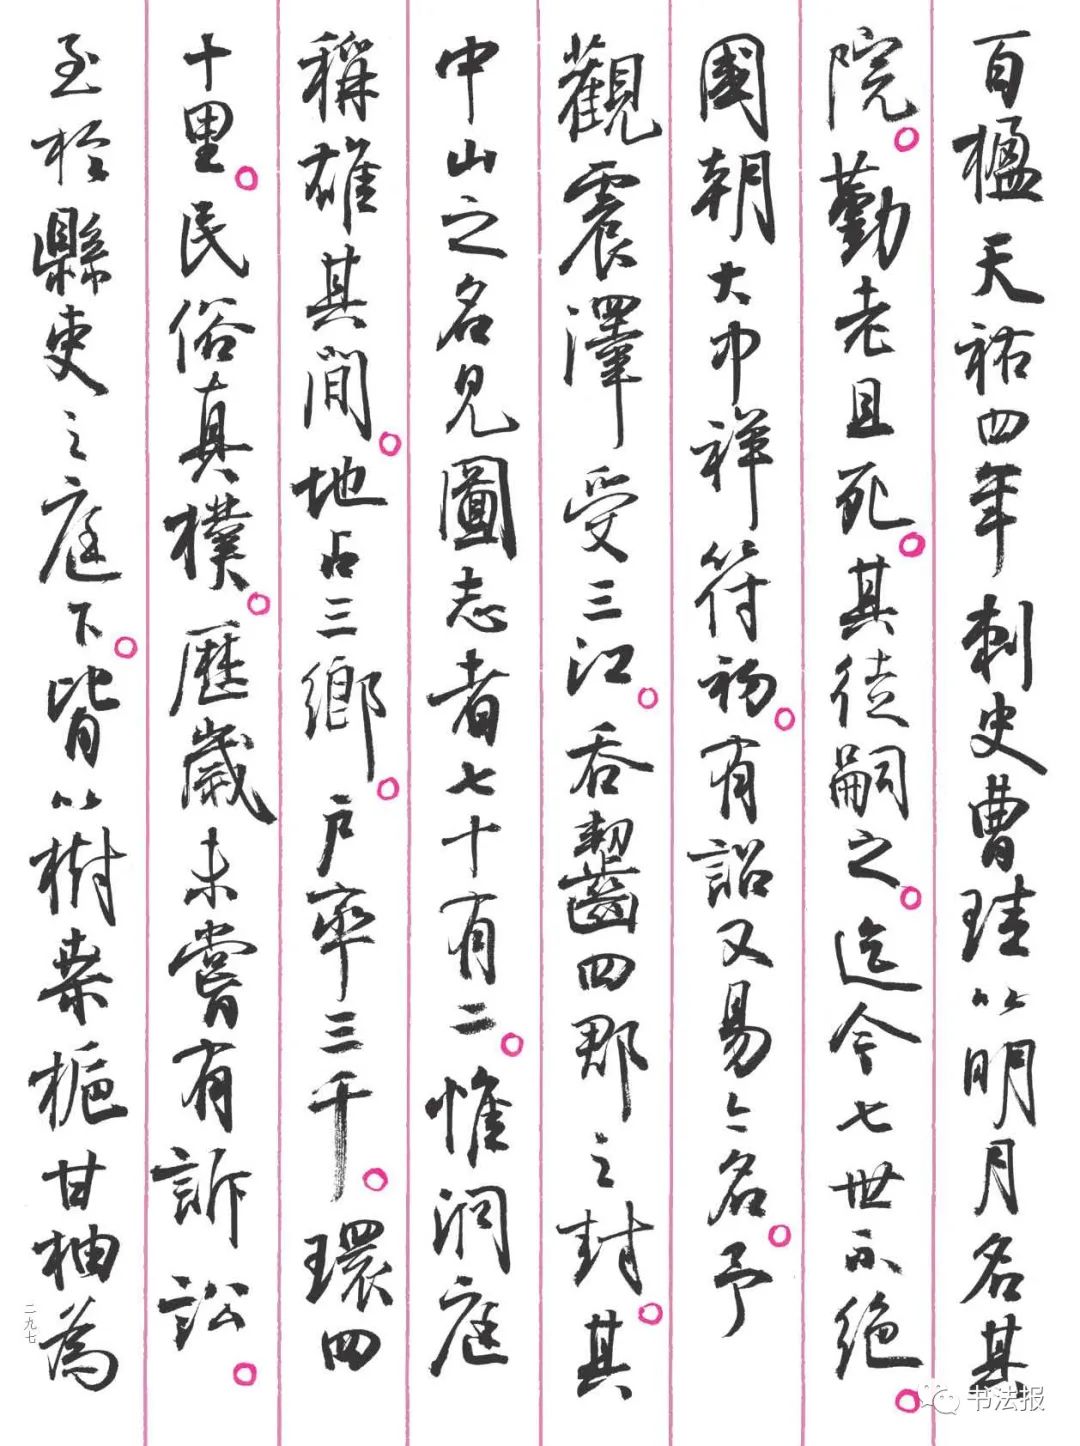 百楹天祐四年刺史曹珪以明月名其
院。勤老且死。其徒嗣之。迄今七世不绝。
國朝大中祥符初。有詔又易今名。予
觀震澤受三江。吞齧四郡之封。其
中山之名見圖志者七十有二。惟洞庭
稱雄其間。地占三鄉。戶率三千。環四
十里。民俗真樸。歷歲未嘗有訴訟。
至於縣吏之庭下。皆以樹桑栀甘柚為
二九七
书法报